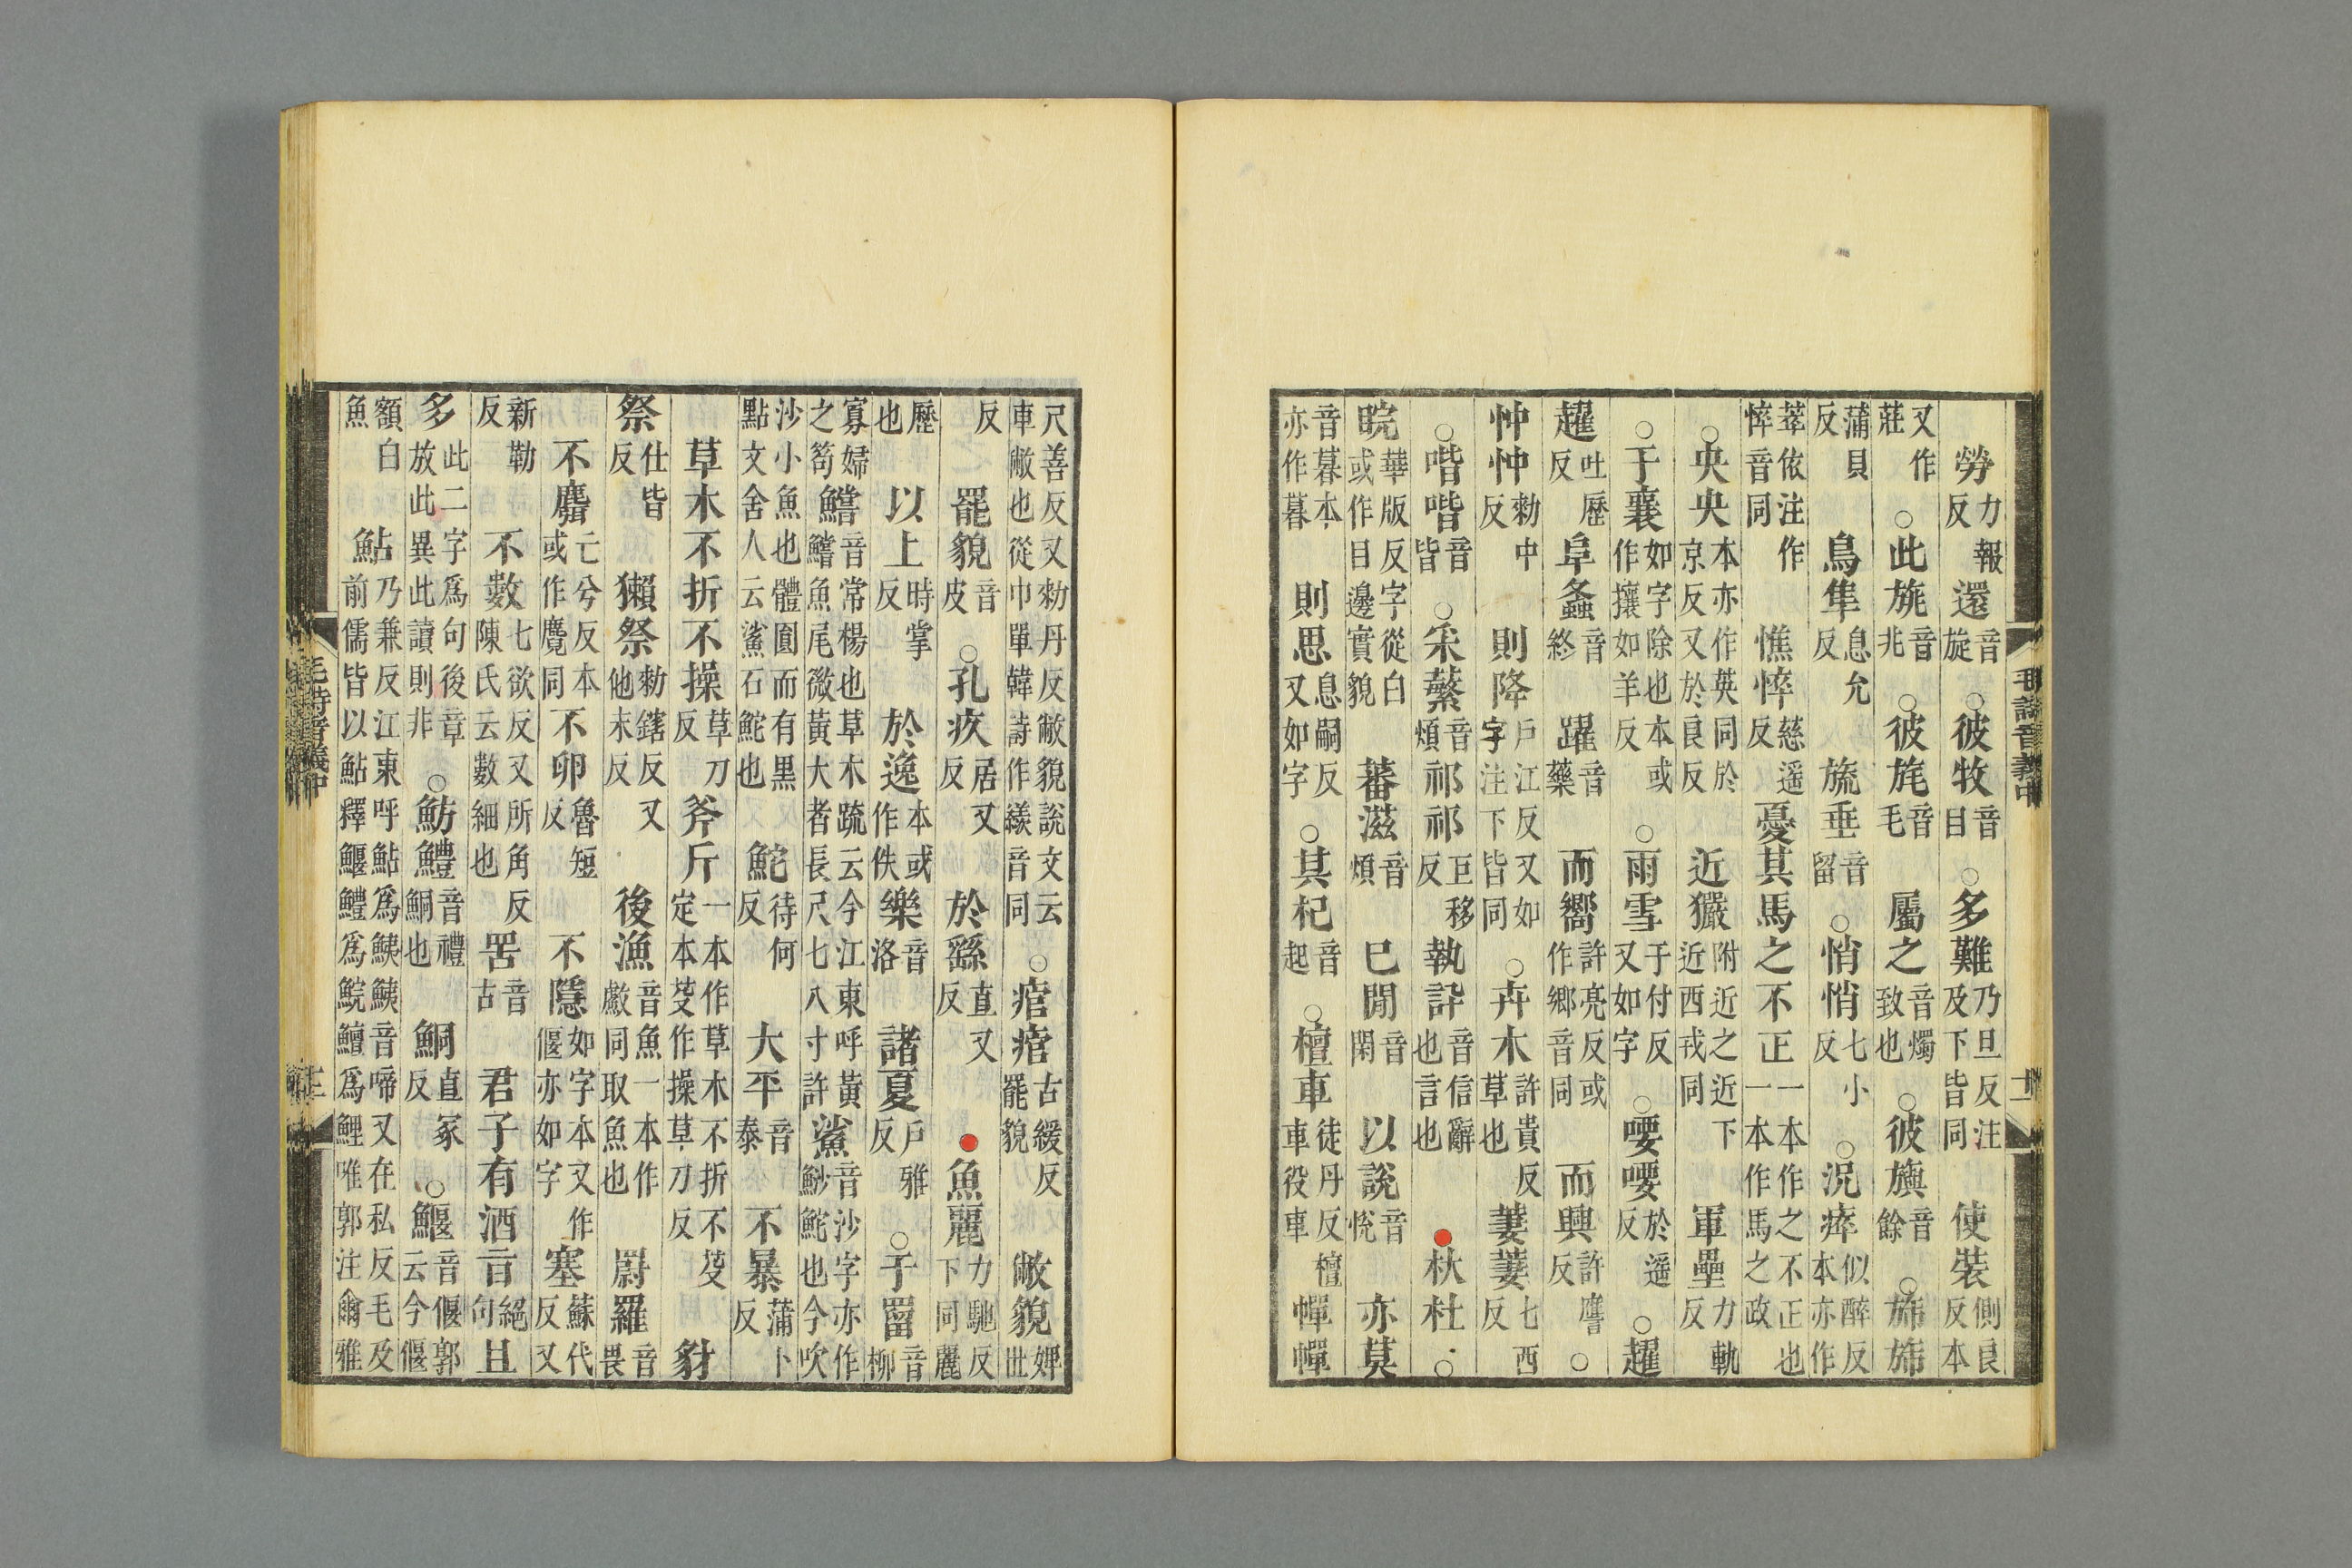 勞力報反還音旋○彼牧音目○多難乃旦反注及下皆同使裝側良反本
又作莊○此旐音兆○彼旄音毛屬之音燭致也○彼旟音餘○旆旆
蒲貝反鳥隼息允反旒垂音留○悄悄七小反○況瘁似醉反本亦作
萃依注作悴音同憔悴慈遥反憂其馬之不正一本作之不正也一本作馬之政
○央央本亦作英同於京反又於良反近玁附近之近下近西戎同軍壘力軌反
○于襄如字除也本或作攘如羊反○雨雪于付反又如字○喓喓於遥反○趯
趯吐歷反阜螽音終躍音藥而嚮許亮反或作鄉音同而興許譍反○
忡忡勑中反則降戶江反又如字注下皆同○卉木許貴反草也萋萋七西反
○喈喈音皆○采蘩音煩祁祁巨移反執訊音信辭也言也●杕杜○
睆華版反字從白或作目邊實貌蕃滋音煩巳閒音閑以說音悅亦莫
音暮本亦作暮則思息嗣反又如字○其杞音起○檀車徒丹反檀車役車幝幝
毛詩音義中
十二
尺善反又勑丹反敝貌說文云車敝也從巾單韓詩作緣音同○痯痯古緩反罷貌敝貌婢世
反罷貌音皮○孔疚居又反於繇直又反●魚麗力馳反下同麗
歷也以上時掌反於逸本或作佚樂音洛諸夏戶雅反○于罶音柳
寡婦之笱鱨音常楊也草木疏云今江東呼黃鱨魚尾微黃大者長尺七八寸許鯊音沙字亦作魦鮀也今吹
沙小魚也體圓而有黑點文舍人云鯊石鮀也鮀待何反大平音泰不暴蒲卜反
草木不折不操草刀反斧斤一本作草木不折不芟定本芟作操草刀反豺
祭仕皆反獺祭勑鎋反又他末反後漁音魚一本作䱷同取魚也罻羅音畏
不麛亡兮反本或作麑同不卵魯短反不隱如字本又作偃亦如字塞蘇代反又
新勒反不數七欲反又所角反陳氏云數細也罟音古君子有酒言絕句且
多此二字爲句後章放此異此讀則非○魴鱧音禮鮦也鮦直冢反○鰋音偃郭云今偃
額白魚鮎乃兼反江東呼鮎爲鮧鮧音啼又在私反毛及前儒皆以鮎釋鰋鱧爲鯇鱣爲鯉唯郭注爾雅
毛詩音義中